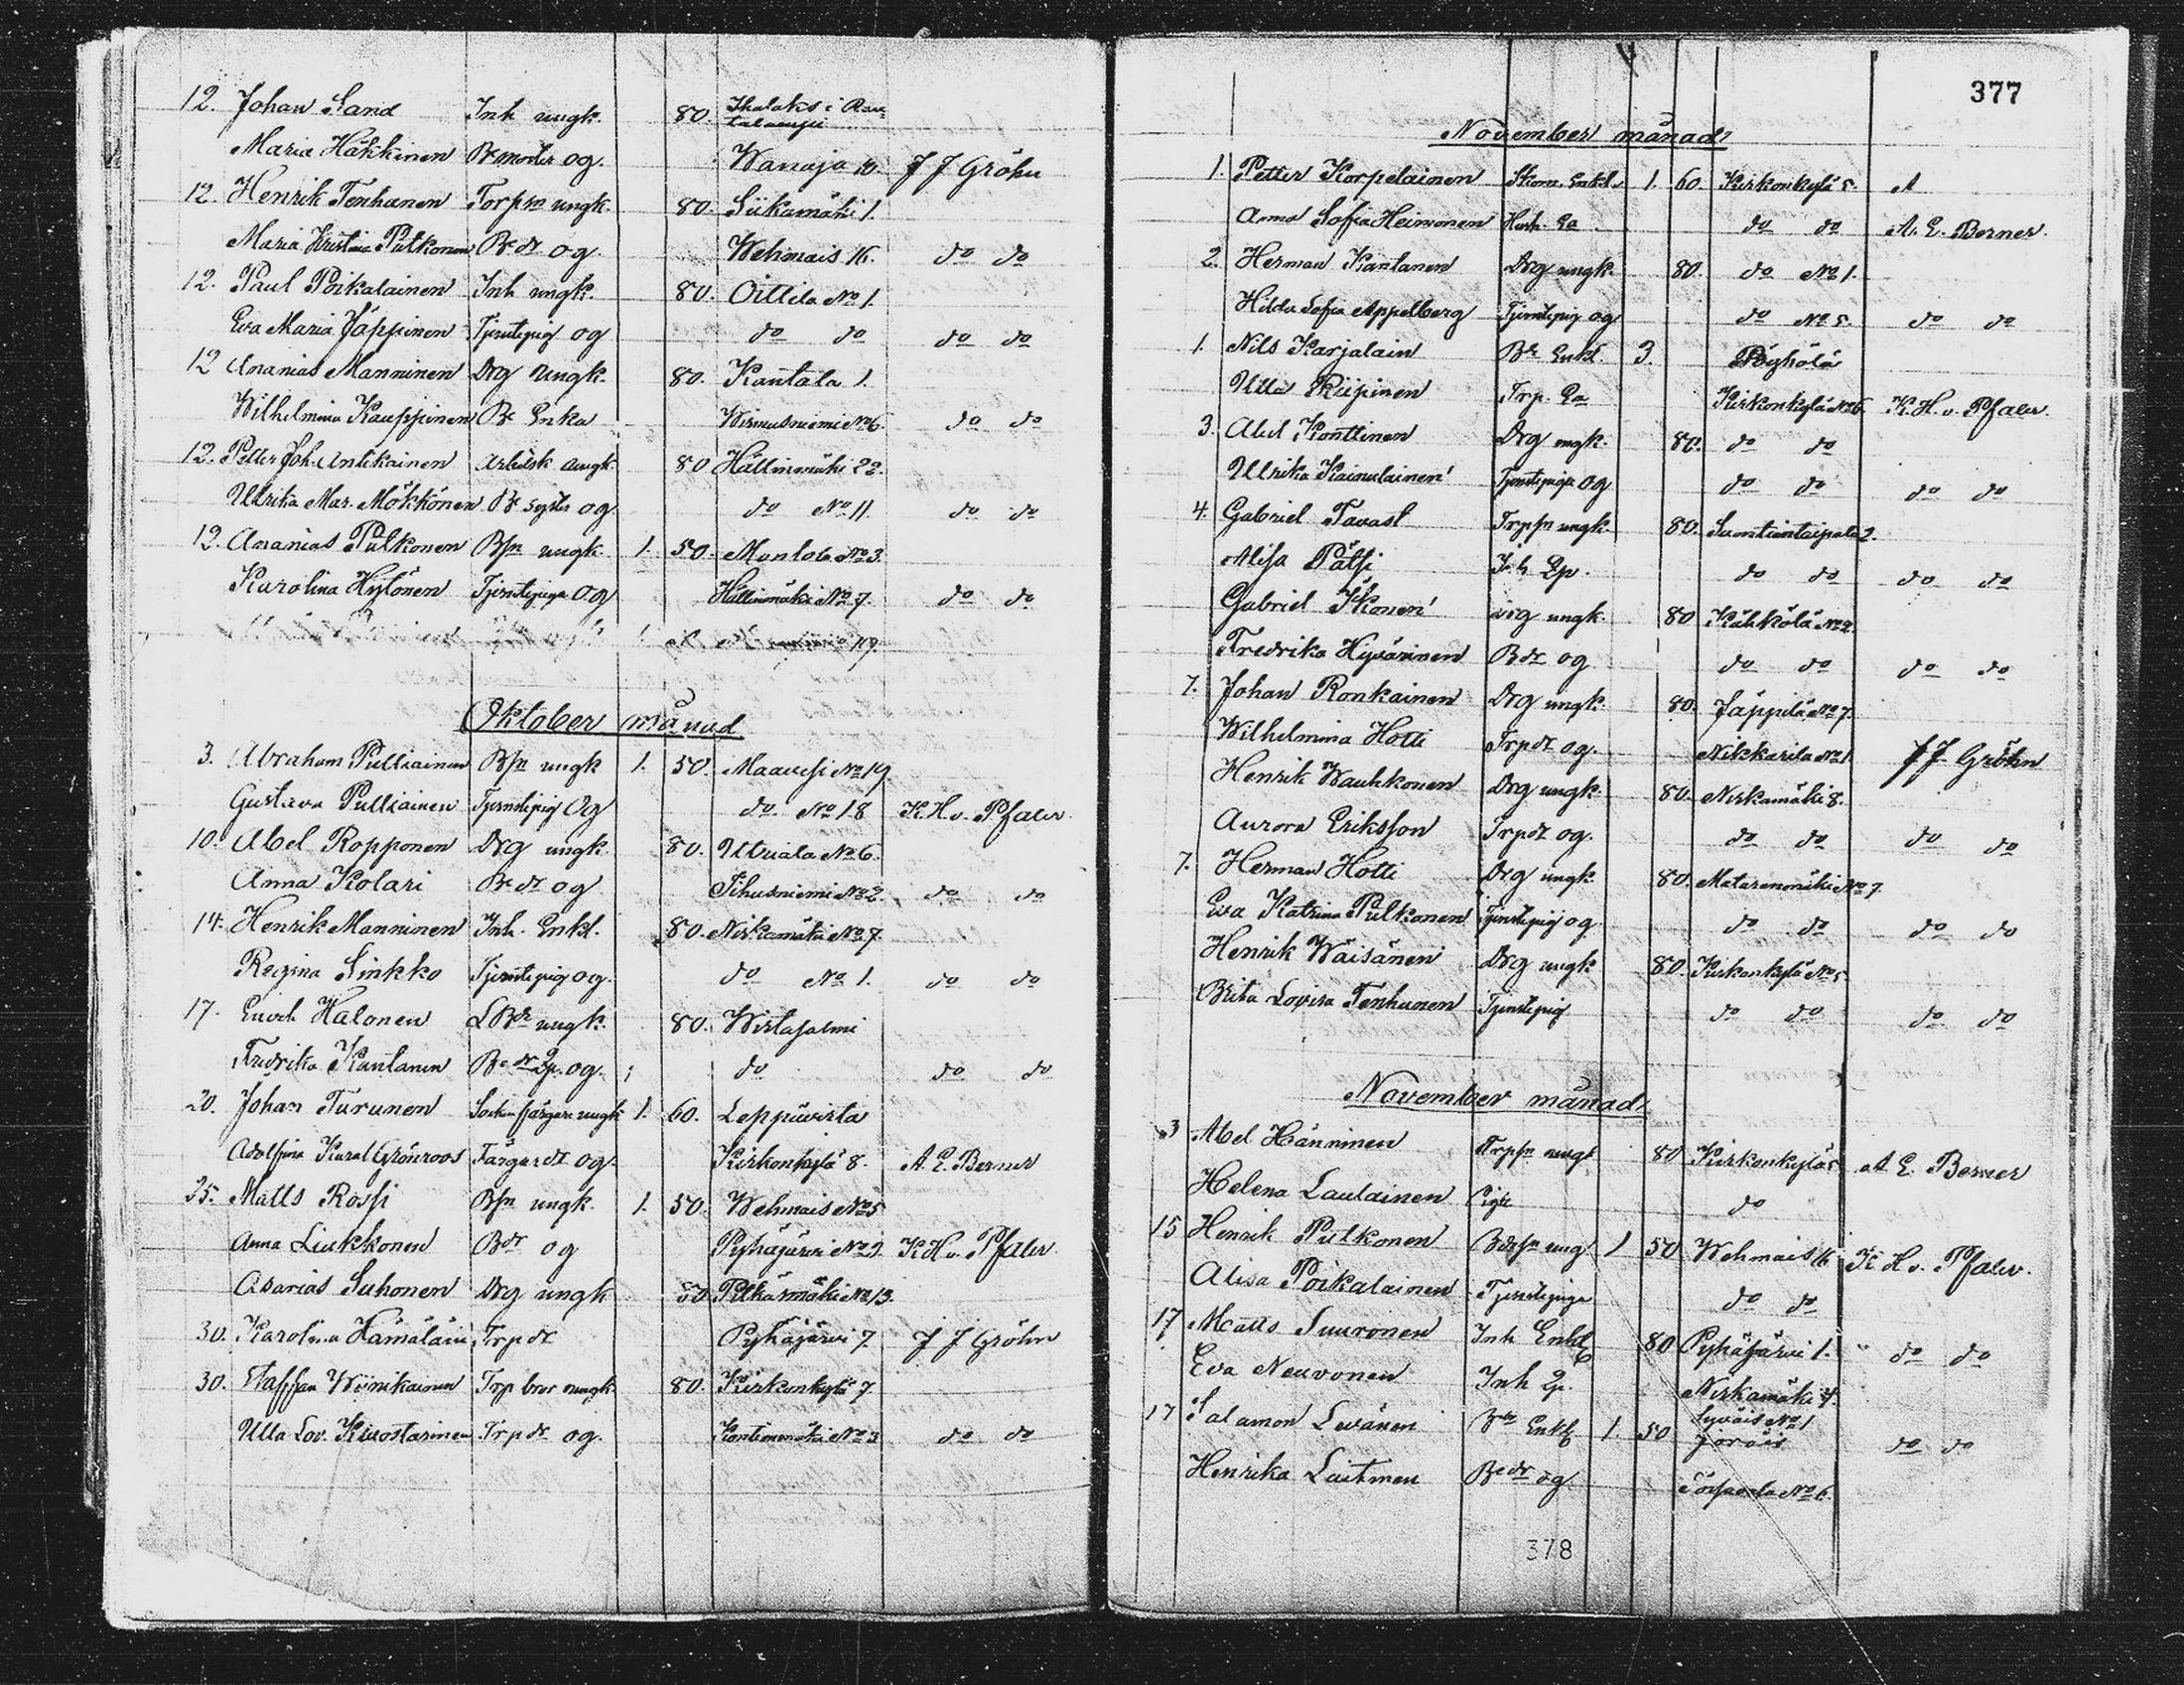 12. Johan Sand Inh ungk. 80. Ihalaks i Rau-
talampi
Maria Häkkinen Bemoder og. Wanaja 10. J J Gröhn
12. Henrik Tenhunen Torpsn ungk. 80. Siikamäki 1.
Maria Kristina Putkonen Bedr og. Wehmais 16. do do
12. Paul Poikalainen Inh ungk. 80. Oittila No 1.
Eva Maria Jäppinen Tjenstepig og do do do do
12 Ananias Manninen Drg ungk. 80. Kantala 1.
Wilhelmina Kauppinen Be Enka No 6. do do
12. Petter Joh. Antikainen ungk. 80 Hällinmäki 22.
Ulrika Mar. Mökkönen Be syster og do No 11. do do
12. Ananias Pulkonen Bsn ungk. 1. 50. Montola No 3.
Karolina Hytönen Tjenstepiga og Hällinmäki No 7. do do
Oktober månad
3. Abraham Pulliainen Bsn ungk 1. 50. Maavesi No 19
Gustava Pulliainen Tjenstepig og do No 18 K H v. Pfaler
10. Abel Ropponen Drg ungk. 80. Utriala No 6.
Anna Kolari Bedr og Sihusniemi No 2. do do
14. Henrik Manninen Inh. Enkl. 80. Niskamäki No 7.
Regina Sinkko Tjenstepig og. do No 1. do do
17. Enoch Halonen LBde ungk. 80. Wirtasalmi
Fredrika Kantanen Bedr 2p. og. do do do
20. Johan Turunen Sockenfärgare ungk 1. 60. Leppävirta
Adolfina Karol Grönroos Färgaredr og. Kirkonkylä 8. A. E. Berner
25. Matts Rossi Bsn ungk. 1. 50. Wehmais No 5
Anna Liukkonen Bdr og Pyhäjärvi No 9. K H v. Pfaler
Asarias Suhonen Drg ungk 80 Pitkäsmäki No 13.
30. Karolina Hämäläin Trpdr Pyhäjärvi 7. J J Gröhn
30. Staffan Wiinikainen Trp bror ungk 80. Kirkonkylä 7.
Ulla Lov. Kuostarinen Trpdr og. Kontinmäki No 3 do do
377
November månad
1. Petter Korpelainen Skom. Enkl. 1. 60. Kirkonkylä 5. A
Anna Sofia Heimonen Hush. Ea do do A. E. Berner.
2. Herman Kantanen Drg ungk. 80. do No 1.
Hilda Sofia Appelberg Tjenstepig og do No 5. do do
1. Nils Karjalain Bde Enkl. 3. Pöyhölä
Ulla Piipinen Trp. Ea Kirkonkylä No 6 K. H. v. Pfaler.
3. Abel Konttinen Drg ungk. 80. do do
Ulrika Kainulainen Tjenstepiga og do do do do
4. Gabriel Tavast Trpsn ungk. 80. Suontientaipale 2.
Alisa Pätsi Inh 2p. do do do do
Gabriel Ikonen drg ungk. 80 Kähkölä No 2.
Fredrika Hyvärinen Bdr og do do do do
7. Johan Ronkainen Drg ungk. 80. Jäppilä No 7.
Wilhelmina Hotti Trpdr og. Nikkarila No 1 J J Gröhn
Henrik Wauhkonen Drg ungk. 80. Niskamäki 8.
Aurora Eriksson Trpdr og. do do do do
7. Herman Hotti Drg ungk. 80. Matarmäki No 7.
Eva Katrina Pulkonen Tjenstepig og do do do do
Henrik Wäisänen Drg ungk 80. Kirkonkylä No 5
Brita Lovisa Tenhunen Tjenstepig do do do do
November månad
3 Abel Hänninen Trpsn ungk 80 Kirkonkylä 5 A E. Berner
Helena Laulainen Piga do
15 Henrik Putkonen Bdesn ung 1 50 Wehmais 16 K H v. Pfaler.
Alisa Poikalainen Tjenstepiga do do
17 Matts Suuronen Inh Enkl 80 Pyhäjärvi 1. do do
Eva Neuvonen Inh 2p. Niskamäki 4.
17 Salamon Levänen Bde Enkl 1. 50 Syväis No 1
Jorois do do
Henrika Laitinen Bedr og. No 6.
378